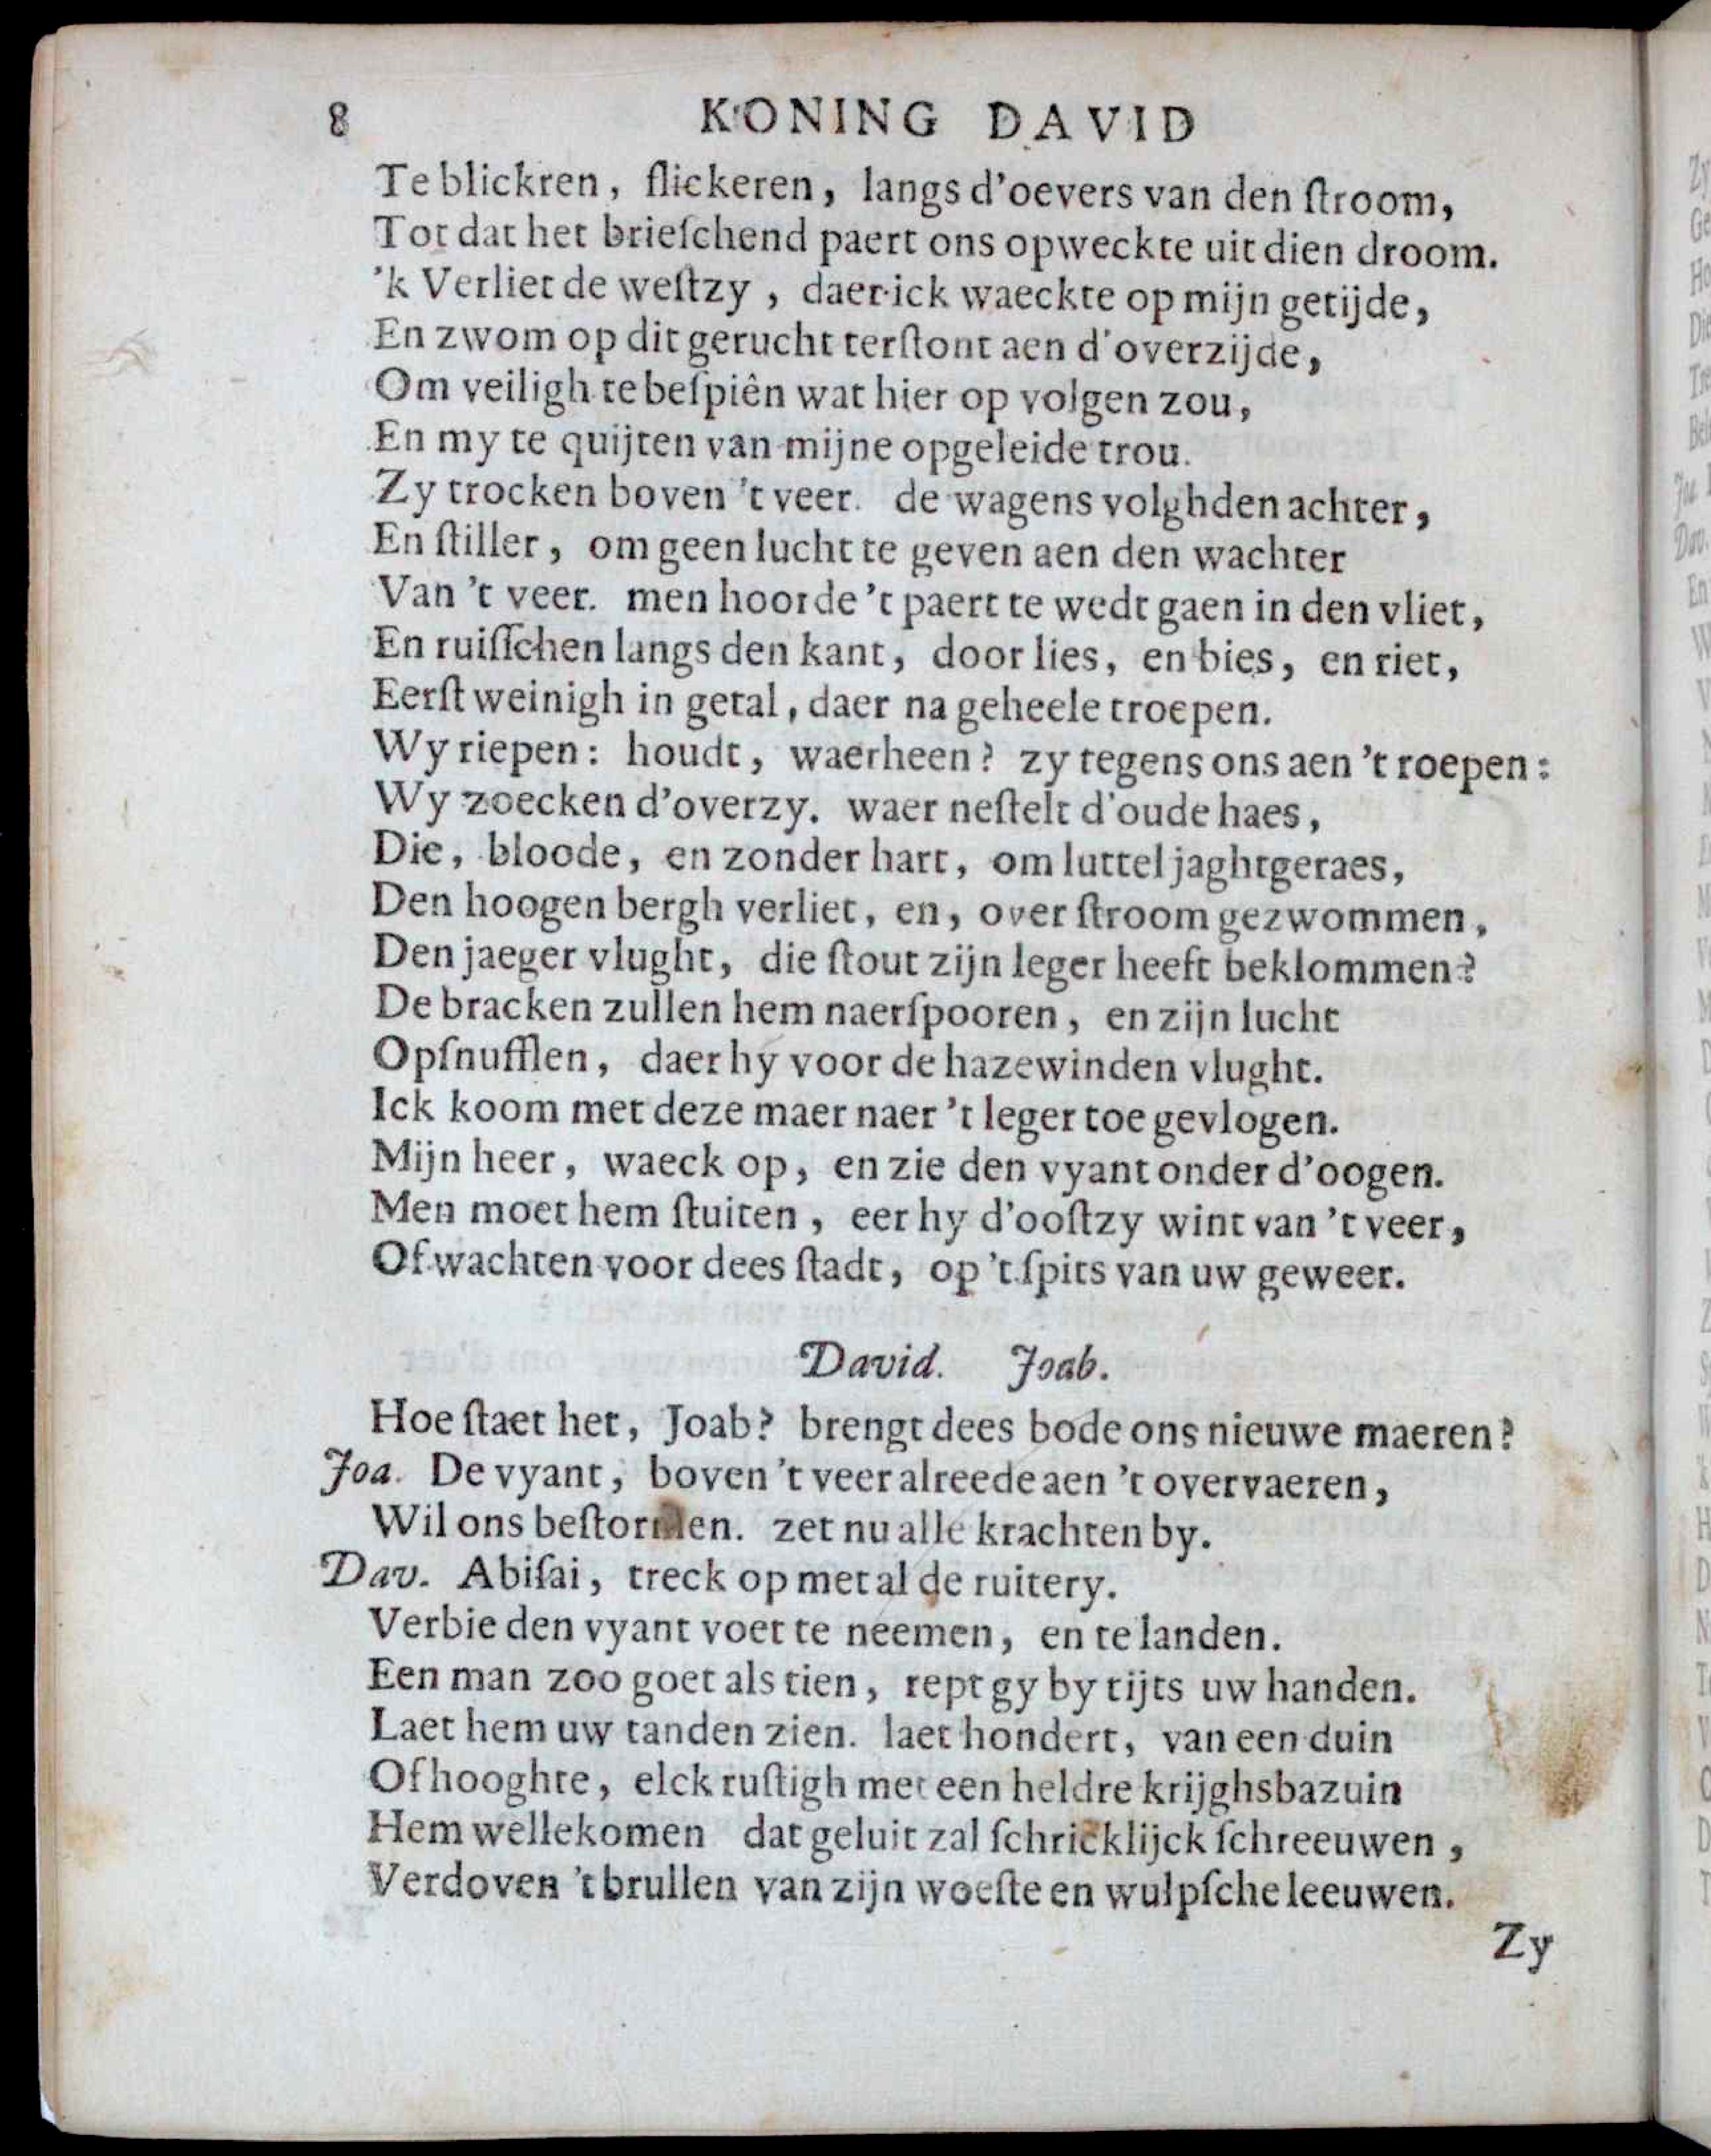 8 KONING DAVID
Te blickren, flickeren, langs d'oevers van den ſtroom,
Tot dat het brieſchend paert ons opweckte uit dien droom.
'k Verliet de weſtzy, daer ick waeckte op mijn getijde,
En zwom op dit gerucht terſtont aen d'overzijde,
Om veiligh te beſpiên wat hier op volgen zou,
En my te quijten van mijne opgeleide trou.
Zy trocken boven 't veer. de wagens volghden achter,
En ſtiller, om geen lucht te geven aen den wachter
Van 't veer. men hoorde 't paert te wedt gaen in den vliet,
En ruiſſchen langs den kant, door lies, en bies, en riet,
Eerſt weinigh in getal, daer na geheele troepen.
Wy riepen: houdt, waerheen? zy tegens ons aen 't roepen:
Wy zoecken d'overzy. waer neſtelt d'oude haes,
Die, bloode, en zonder hart, om luttel jaghtgeraes,
Den hoogen bergh verliet, en, over ſtroom gezwommen,
Den jaeger vlught, die ſtout zijn leger heeft beklommen?
De bracken zullen hem naerſpooren, en zijn lucht
Opſnufflen, daer hy voor de hazewinden vlught.
Ick koom met deze maer naer 't leger toe gevlogen.
Mijn heer, waeck op, en zie den vyant onder d'oogen.
Men moet hem ſtuiten, eer hy d'ooſtzy wint van 't veer,
Of wachten voor dees ſtadt, op 't ſpits van uw geweer.
David. Joab.
Hoe ſtaet het, Joab? brengt dees bode ons nieuwe maeren?
Joa. De vyant, boven 't veer alreede aen 't overvaeren,
Wil ons beſtormen. zet nu alle krachten by.
Dav. Abiſai, treck op met al de ruitery.
Verbie den vyant voet te neemen, en te landen.
Een man zoo goet als tien, rept gy by tijts uw handen.
Laet hem uw tanden zien. laet hondert, van een duin
Of hooghte, elck ruſtigh met een heldre krijghsbazuin
Hem wellekomen dat geluit zal ſchricklijck ſchreeuwen,
Verdoven 't brullen van zijn woeſte en wulpſche leeuwen.
Zy